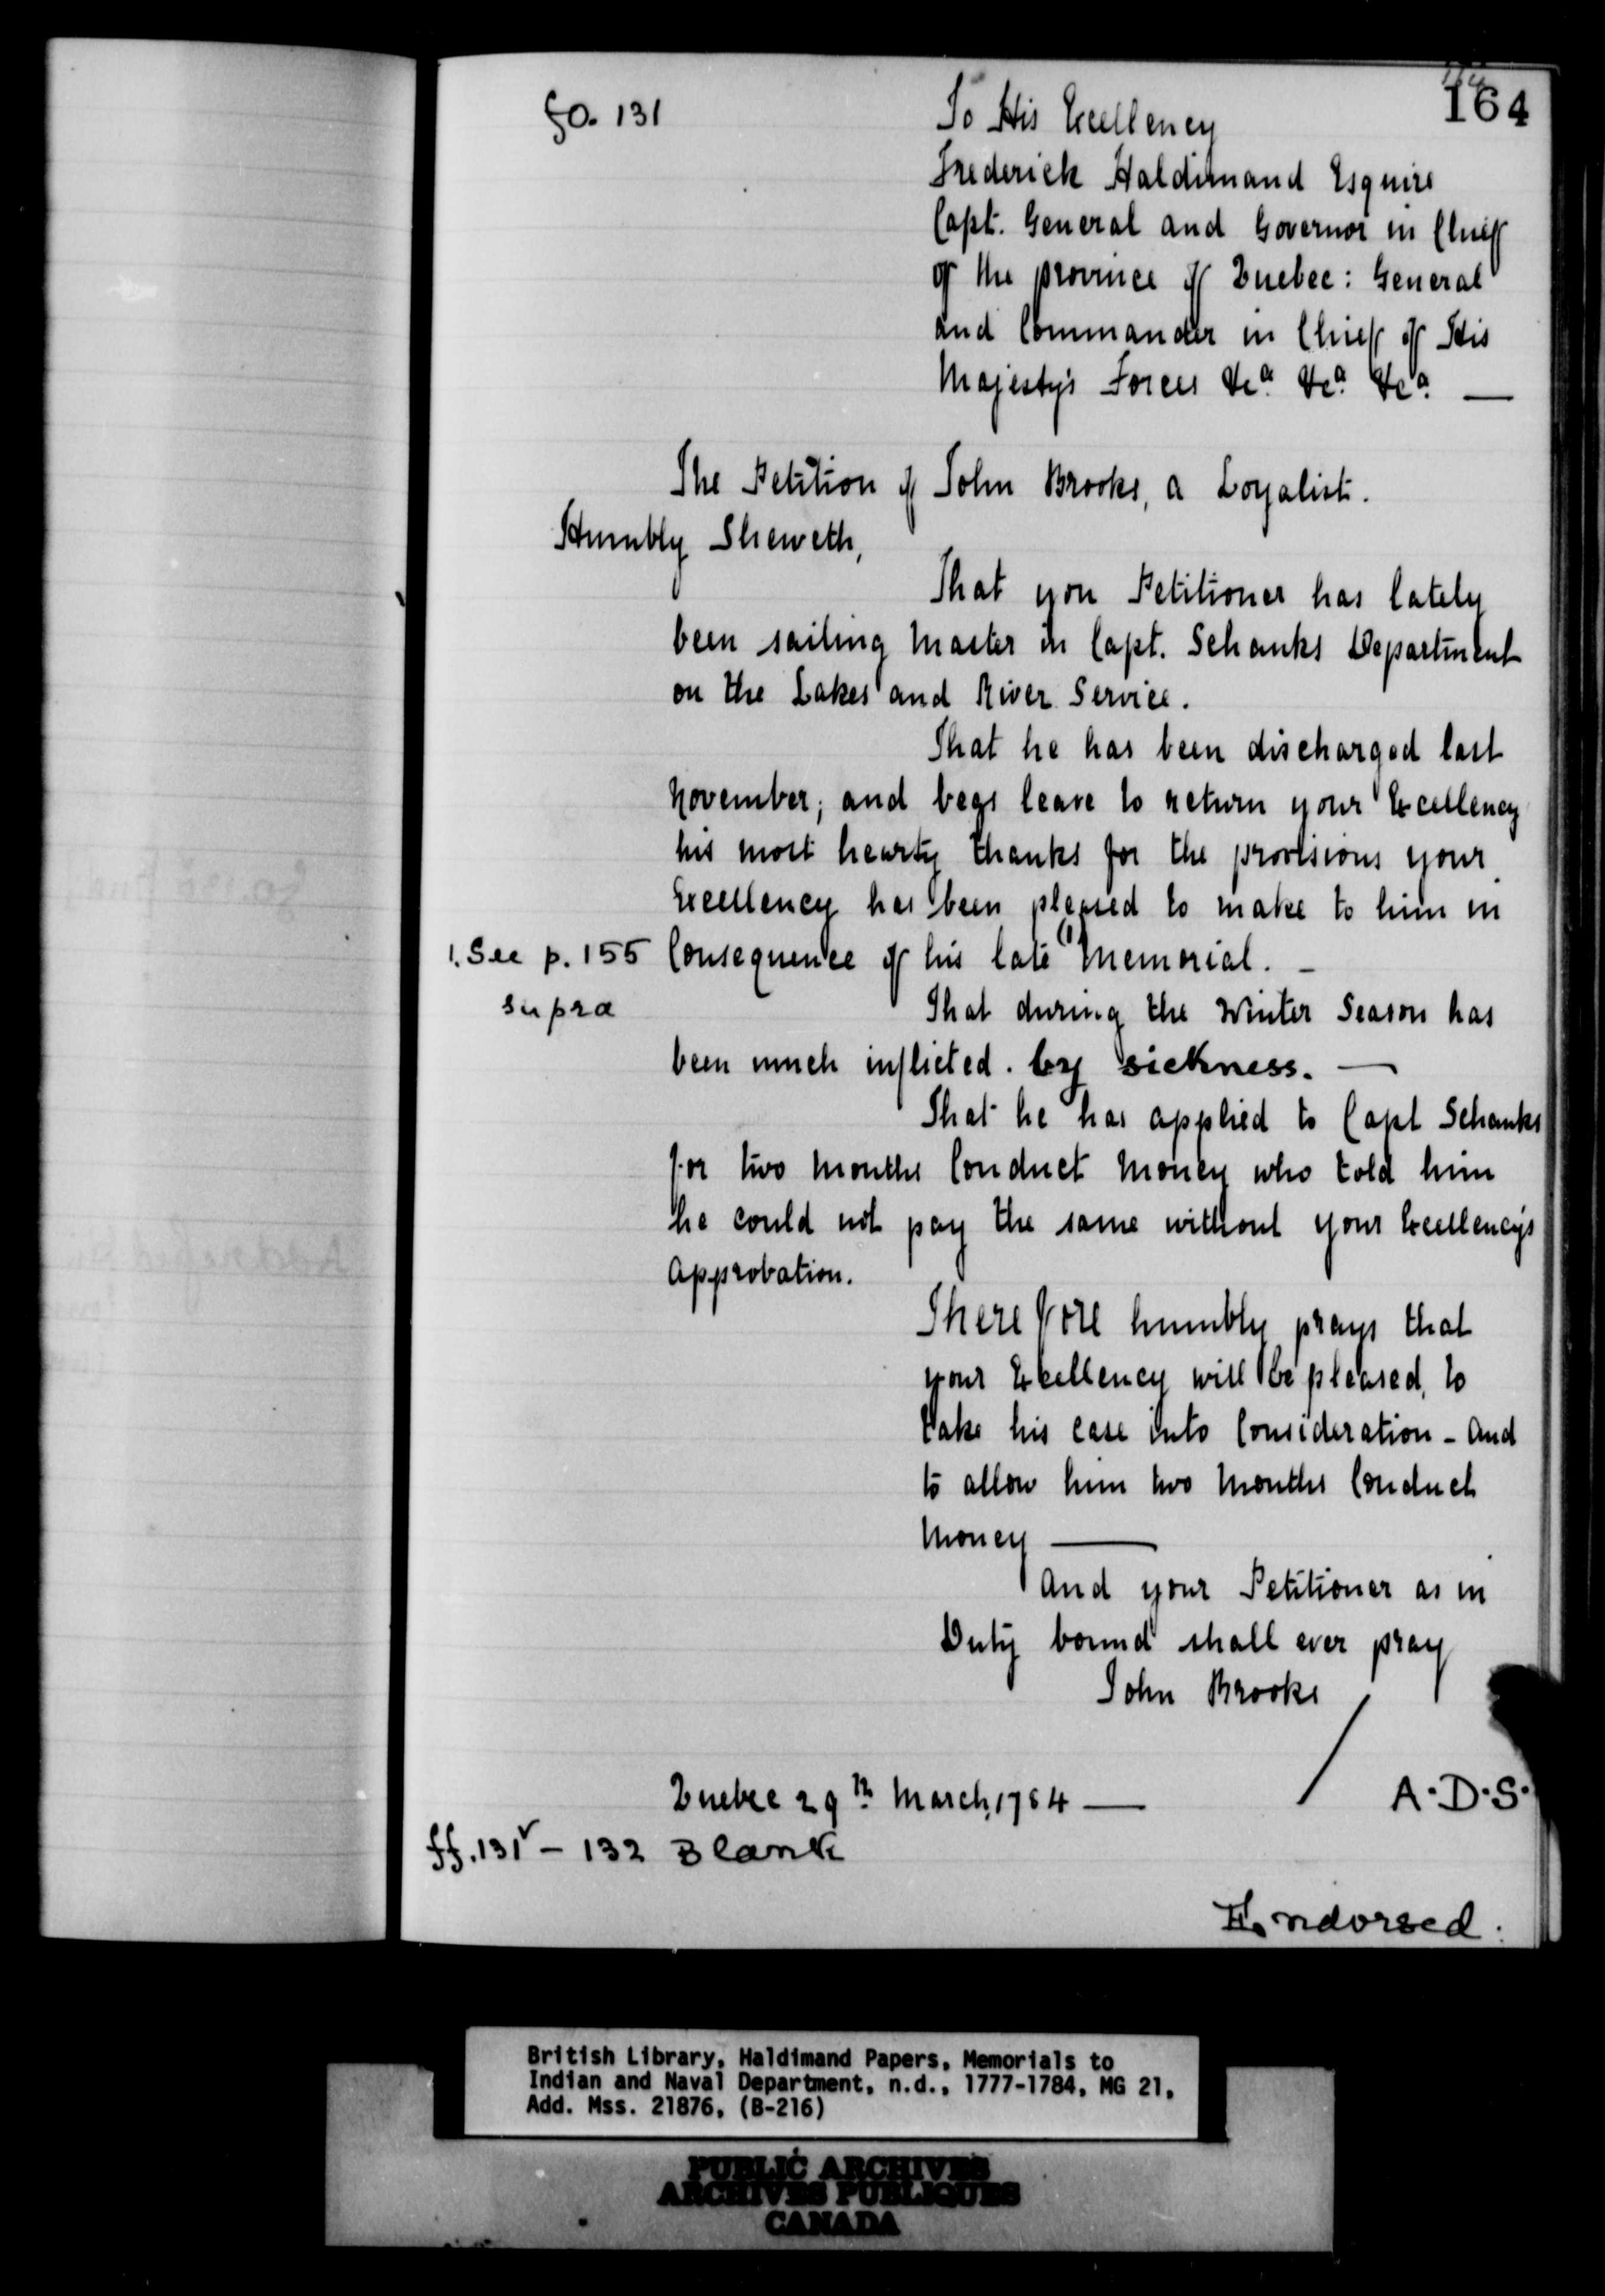 164
fo. 131
To His Excellency
Frederick Haldimand Esquire
Capt. General and Governor in Chieff
of the province of Quebec: General
and Commander in Chieff of His
Majesty's Forces &cª &cª. &cª. —
The Petition of John Brooks, a Loyalist.
Humbly Sheweth,
That you Petitioner has lately
been sailing Master in Capt. Schanks Department
on the Lakes and River Service.
That he has been discharged last
November; and begs leave to return your Excellency
his most hearty thanks for the provisions your
Excellency has been pleased to make to him in
1. See p. 155 Consequence of his late (1 Memorial. —
supra
That during the Winter Season has
been much inflicted. by sickness. —
That he has applied to Capt Schanks
for two Months Conduct Money who told him
he could not pay the same without your Excellency's
Approbation.
Therefore humbly prays that
your Excellency will be pleased, to
take his case into Consideration - And
to allow him two Months Conduct
Money —
And your Petitioner as in
Duty bound shall ever pray
John Brooks
Quebec 29th. March, 1784 —
A.D.S.
ff. 131v - 132 Blank
Endorsed.
British Library, Haldimand Papers, Memorials to
Indian and Naval Department, n.d., 1777-1784, MG 21,
Add. Mss. 21876, (B-216)
PUBLIC ARCHIVES
ARCHIVES PUBLIQUES
CANADA